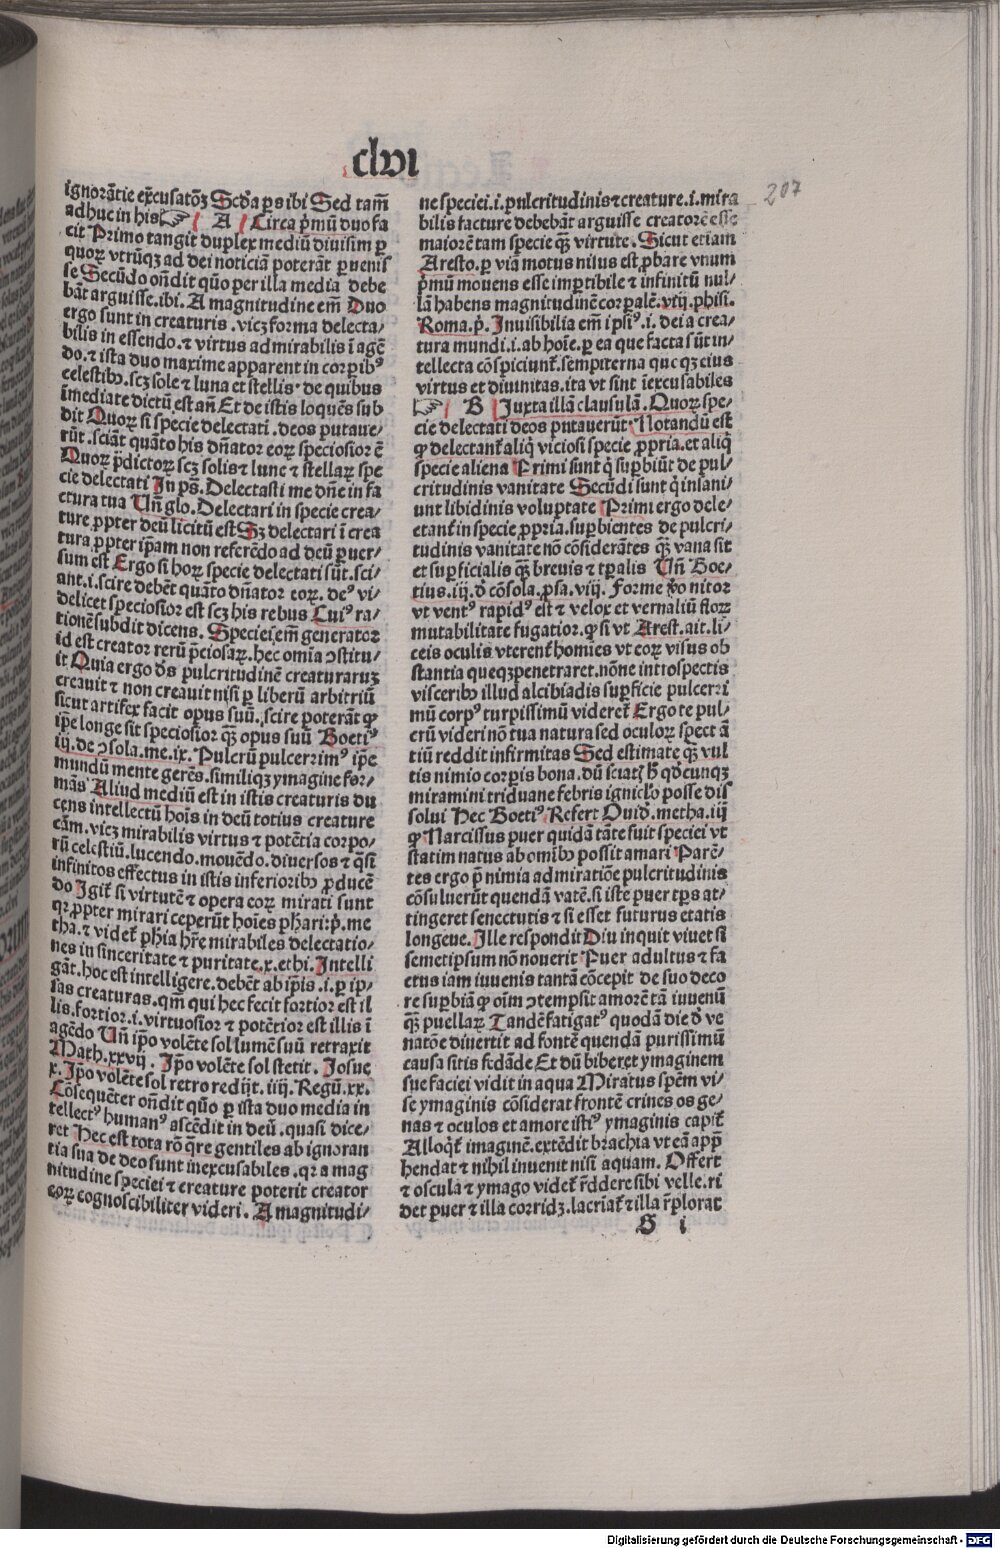 clvi
207
ignorãtie excusatõꝫ Scd̾a ps ibi Sed tam̃
adhuc in his ☞ A Circa p̃mũ duo fa
cit Primo tangit duplex mediũ diuisim ꝑ
quoꝝ vtrũqꝫ ad dei noticiã poterãt ꝑuenis
se Secũdo oñdit quõ per illa media debe
bãt arguisse.ibi. A magnitudine em̃ Duo
ergo sunt in creaturis .vicꝫ forma delecta/
bilis in essendo.⁊ virtus admirabilis ĩ agẽ
do.⁊ ista duo maxime apparent in corꝑibꝰ
celestibꝫ.scꝫ sole ⁊ luna et stellis· de quibus
ĩmediate dictũ est añ Et de istis loquẽs sub
dit Quoꝝ si specie delectati .deos putaue/
rũt .sciãt quãto his dñator eoꝝ speciosior ẽ
Quoꝝ p̃dictoꝝ scꝫ solis ⁊ lune ⁊ stellaꝝ spe
cie delectati In pš.Delectasti me dñe in fa
ctura tua Vñ glo.Delectari in specie crea/
ture ꝓpter deũ licitũ est Sꝫ delectari ĩ crea
tura ꝓpter ip̃am non referẽdo ad deũ ꝑuer/
sum est Ergo si hoꝝ specie delectati sũt.sci/
ant.i.scire debẽt quãto dñator eoꝝ. deꝰ vi/
delicet speciosior est scꝫ his rebus Cuiꝰ ra/
tionẽ subdit dicens. Speciei em̃ generator
id est creator rerũ p̃ciosaꝝ.hec om̃ia ↄstitu/
it Quia ergo dš pulcritudinẽ creaturarꝫ
creauit ⁊ non creauit nisi ꝑ liberũ arbitriũ
sicut artifex facit opus suũ.scire poterãt ꝙ
ip̃e longe sit speciosior q̃ꝫ opus suũ Boetiꝰ
iij.de ↄsola.me.ix. Pulcrũ pulcerrimꝰ ip̃e
mundũ mente gerẽs.similiqꝫ ymagine for/
mãs Aliud mediũ est in istis creaturis du
cens intellectũ hoĩs in deũ totius creature
cãm.vicꝫ mirabilis virtus ⁊ potẽtia corpo/
rũ celestiũ.lucendo.mouẽdo.diuersos ⁊ q̃si
infinitos effectus in istis inferioribꝫ ꝓducẽ
do Igit̃ si virtutẽ ⁊ opera eoꝝ mirati sunt
qꝛ ꝓpter mirari ceperũt hoĩes phari:p̃.me
tha.⁊ videt̃ phĩa hr̃e mirabiles delectatio/
nes in sinceritate ⁊ puritate.x.ethi. Intelli
gãt.hoc est intelligere.debẽt ab ip̃is.i.ꝑ ip/
sas creaturas.qm̃ qui hec fecit fortior est il
lis.fortior.i.virtuosior ⁊ potẽtior est illis ĩ
agẽdo Vñ ip̃o volẽte sol lumẽ suũ retraxit
Math.xxvij. Ip̃o volẽte sol stetit. Josue
x.Ip̃o volẽte sol retro redijt.iiij.Regũ.xx.
Cõsequẽter oñdit quõ ꝑ ista duo media in
tellectꝰ humanꝰ ascẽdit in deũ.quasi dice/
ret Hec est tota rõ q̃re gentiles ab ignoran
tia sua de deo sunt inexcusabiles.qꝛ a mag
nitudine speciei ⁊ creature poterit creator
eoꝝ cognoscibiliter videri. A magnitudi/
ne speciei.i.pulcritudinis ⁊ creature.i.mira
bilis facture debebãt arguisse creatorẽ esse
maiorẽ tam specie q̃ꝫ virtute. Sicut etiam
Aresto.ꝑ viã motus nisus est ꝓbare vnum
p̃mũ mouens esse impartibile ⁊ infinitũ nul/
lã habens magnitudinẽ corꝑalẽ.viij.phisi.
Roma.p̃. Inuisibilia em̃ ip̃iꝰ.i.dei a crea/
tura mundi.i.ab hoĩe.ꝑ ea que facta sũt in/
tellecta cõspiciunt̃.sempiterna quoqꝫ eius
virtus et diuinitas.ita vt sint ĩexcusabiles
☞ B Juxta illã clausulã.Quoꝝ spe/
cie delectati deos putauerũt Notandũ est
ꝙ delectant̃ aliq̃ viciosi specie ꝓpria.et aliq̃
specie aliena Primi sunt q̃ suꝑbiũt de pul/
critudinis vanitate Secũdi sunt q̃ insani/
unt libidinis voluptate Primi ergo dele/
ctant̃ in specie ꝓpria.suꝑbientes de pulcri/
tudinis vanitate nõ cõsiderãtes q̃ꝫ vana sit
et suꝑficialis q̃ꝫ breuis ⁊ tꝑalis Vñ Boe/
tius.iij.d̾ cõsola.ꝓsa.viij. Forme ꝟo nitor
vt ventꝰ rapidꝰ est ⁊ velox et vernaliũ floꝝ
mutabilitate fugatior.ꝙ si vt Arest.ait.li/
ceis oculis vterent̃ hoĩes vt eoꝝ visus ob
stantia queqꝫ penetraret.nõne introspectis
visceribꝫ illud alcibiadis suꝑficie pulcerri
mũ corpꝰ turpissimũ videret̃ Ergo te pul/
crũ videri nõ tua natura sed oculoꝝ spectã
tiũ reddit infirmitas Sed estimate q̃ꝫ vul
tis nimio corꝑis bona.dũ sciatꝭ h̾ qd̾cunqꝫ
miramini triduane febris igniclo posse dis
solui Hec Boetiꝰ Refert Ouid̾.metha.iij
ꝙ Narcissus puer quidã tãte fuit speciei vt
statim natus ab om̃ibꝫ possit amari Parẽ/
tes ergo p̃ nimia admiratiõe pulcritudinis
cõsuluerũt quendã vatẽ.si iste puer tꝑs at/
tingeret senectutis ⁊ si esset futurus etatis
longeue. Ille respondit Diu inquit viuet si
semetipsum nõ nouerit Puer adultus ⁊ fa
ctus iam iuuenis tantã cõcepit de suo deco
re suꝑbiã ꝙ oĩm ↄtempsit amorẽ tã iuuenũ
q̃ꝫ puellaꝝ Tandẽ fatigatꝰ quodã die d̾ ve
natõe diuertit ad fontẽ quendã purissimũ
causa sitis scdãde Et dũ biberet ymaginem
sue faciei vidit in aqua Miratus spẽm vi/
se ymaginis cõsiderat frontẽ crines os ge/
nas ⁊ oculos et amore istiꝰ ymaginis capit̃
Alloq̃t̃ imaginẽ.extẽdit brachia vt eã app̃
hendat ⁊ nihil inuenit nisi aquam. Offert
⁊ oscula ⁊ ymago videt̃ r̃ddere sibi velle.ri
det puer ⁊ illa corridꝫ.lacriat̃ ⁊ illa r̃plorat
S i
Digitalisierung gefördert durch die Deutsche Forschungsgemeinschaft - DFG